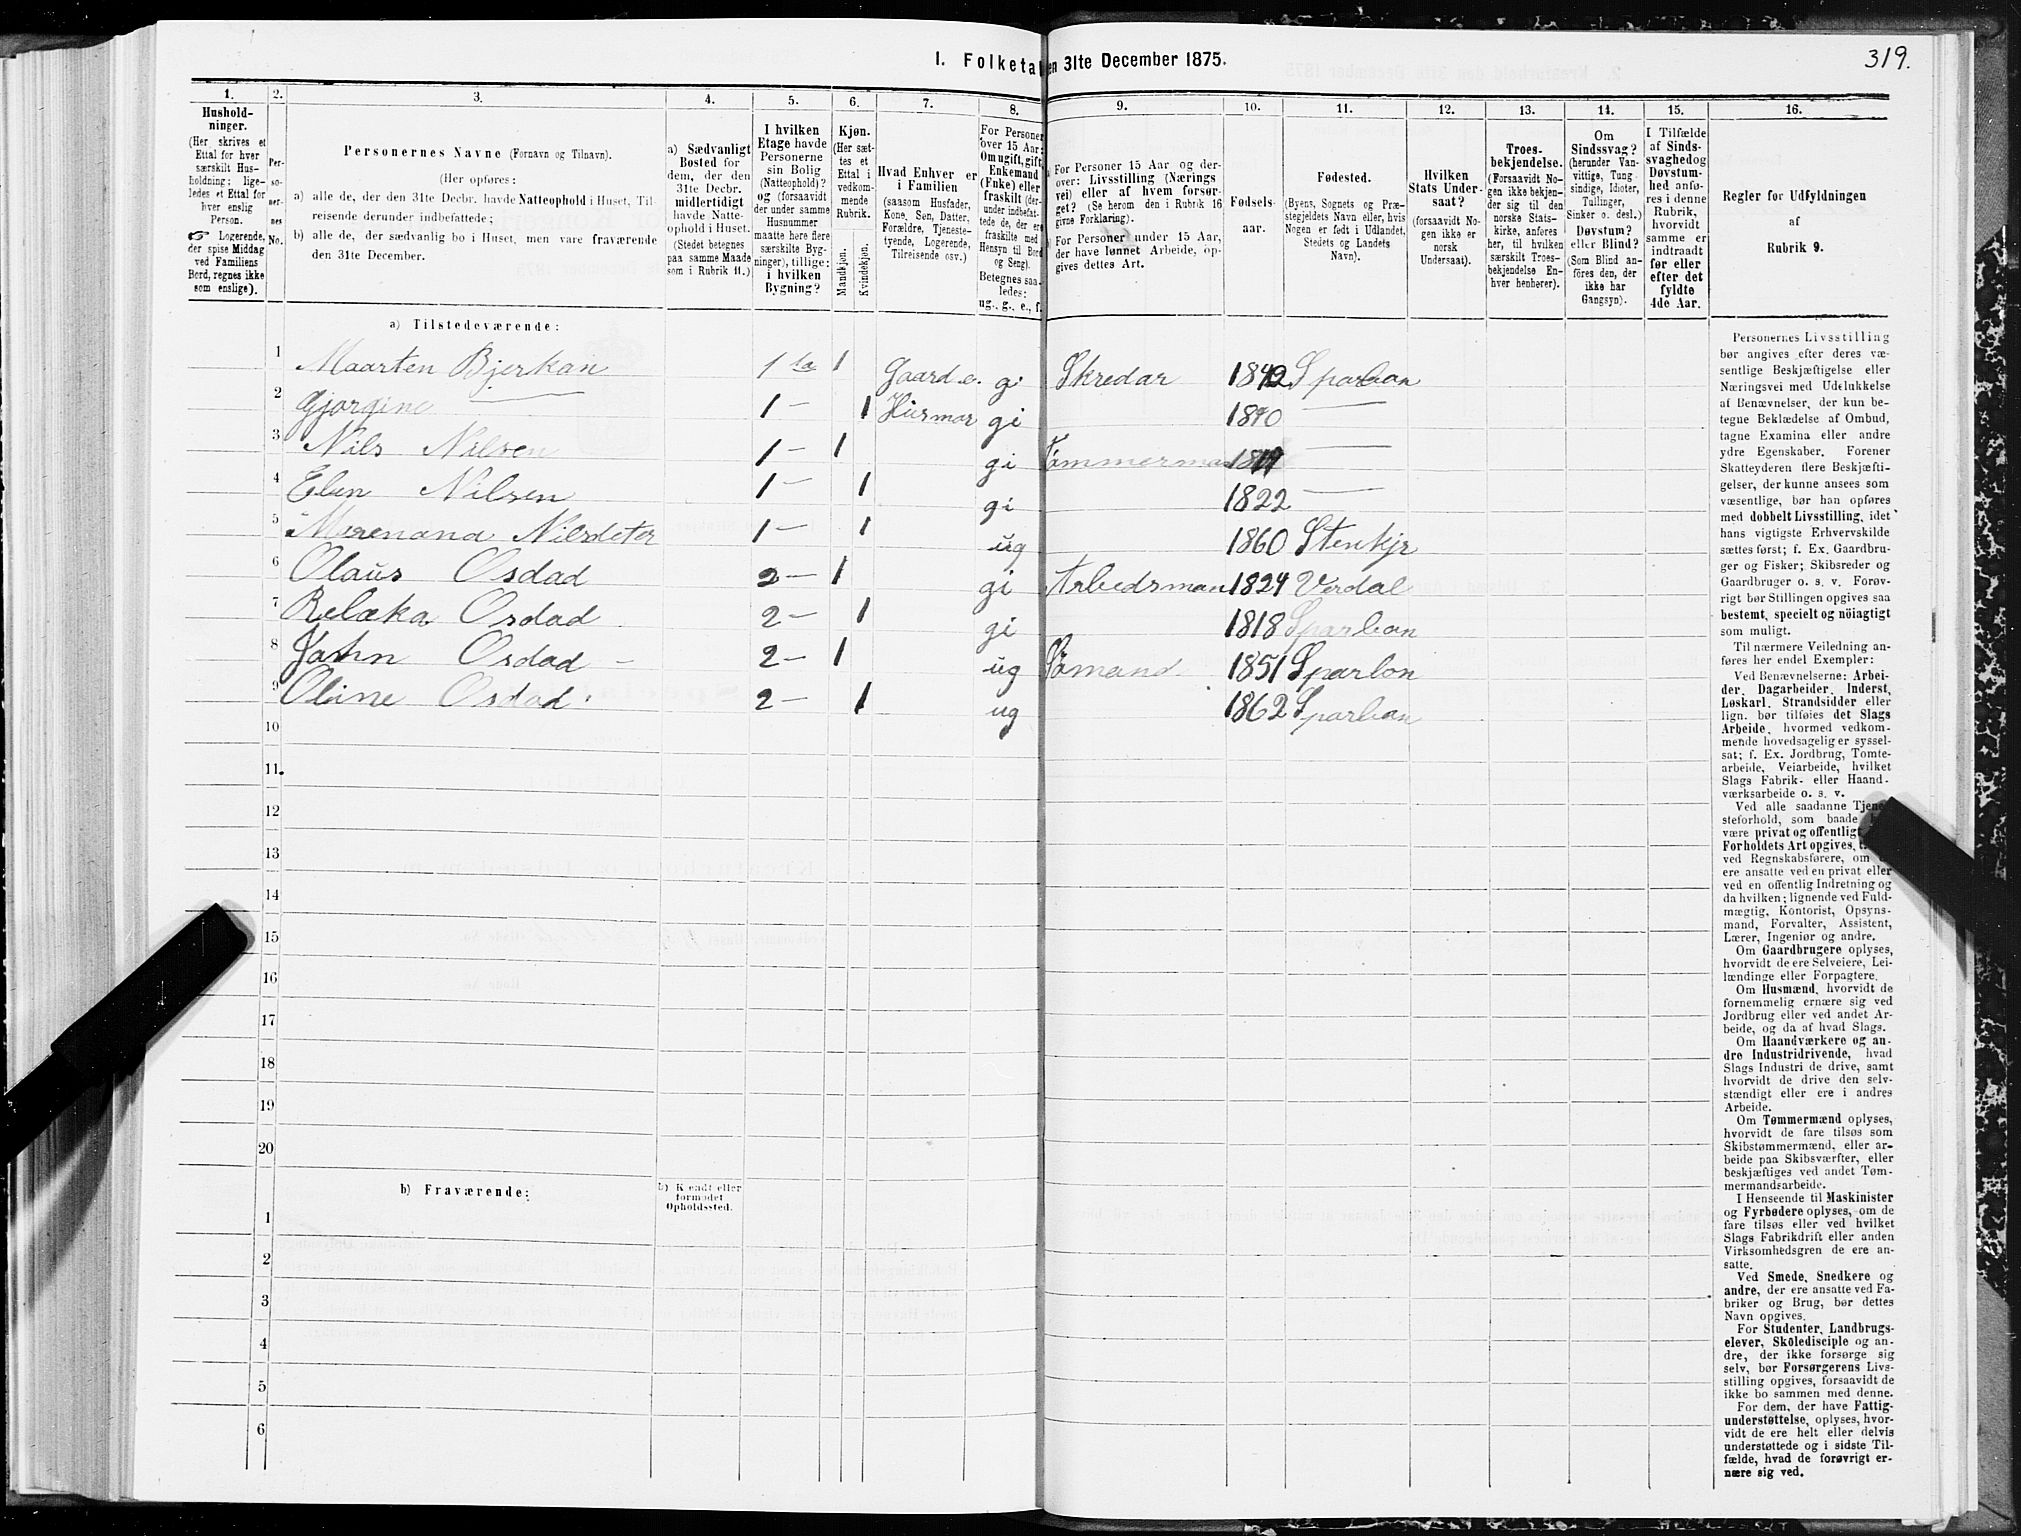 I. Folketal den 31te December 1875.
319.
1.
Hushold-
ninger.
(Her skrives et
Ettal for hver
særskilt Hus-
holdning; lige-
ledes et Ettal for
hver enslig
Person.
☞ Logerende,
der spise Middag
ved Familiens
Bord, regnes ikke
som enslige).
2.
Per-
so-
ner-
nes
No.
3.
Personernes Navne (Fornavn og Tilnavn).
(Her opføres:
a) alle de, der den 31te Decbr. havde Natteophold i Huset, Til-
reisende derunder indbefattede;
b) alle de, der sædvanlig bo i Huset, men vare fraværende
den 31te December.
4.
a) Sædvanligt
Bosted for
dem, der den
31te Decbr.
midlertidigt
havde Natte-
ophold i Huset.
(Stedet betegnes
paa samme Maade
som i Rubrik 11.)
5.
I hvilken
Etage havde
Personerne
sin Bolig
(Natteophold)?
og (forsaavidt
der under samme
Husnummer
maatte høre flere
særskilte Byg-
ninger), tillige:
i hvilken
Bygning?
6.
Kjøn.
(Her sæt-
tes et
Ettal i
vedkom-
mende
Rubrik.
Mandkjøn.
Kvindekjøn.
7.
Hvad Enhver er
i Familien
(saasom Husfader,
Kone, Søn, Datter,
Forældre, Tjeneste-
tyende, Logerende,
Tilreisende osv.)
8.
For Personer
over 15 Aar:
Om ugift, gift,
Enkemand
(Enke) eller
fraskilt (der-
under indbefat-
tede de, der ere
fraskilte med
Hensyn til Bord
og Seng).
Betegnes saa-
ledes:
ug., g., e., f.
9.
For Personer 15 Aar og der-
over: Livsstilling (Nærings
vei) eller af hvem forsør-
get? (Se herom den i Rubrik 16
givne Forklaring).
For Personer under 15 Aar,
der have lønnet Arbeide, op-
gives dettes Art.
10.
Fødsels-
aar.
11.
Fødested.
(Byens, Sognets og Præ-
stegjeldets Navn eller, hvis
Nogen er født i Udlandet,
Stedets og Landets
Navn).
12.
Hvilken
Stats Under-
saat?
(forsaavidt No-
gen ikke er
norsk
Undersaat).
13.
Troes-
bekjendelse.
(Forsaavidt No-
gen ikke bekjen-
der sig til den
norske Stats-
kirke, anføres
her, til hvilken
særskilt Troes-
bekjendelse En-
hver henhører).
14.
Om
Sindssvag?
(herunder Van-
vittige, Tung
sindige, Idioter,
Tullinger,
Sinker o. desl.)
Døvstum?
eller Blind?
(Som Blind an-
føres den, der
ikke har
Gangsyn).
15.
I Tilfælde
af Sinds-
svaghed og
Døvstum-
hed anfø-
res i denne
Rubrik,
hvorvidt
samme er
indtraadt
før eller
efter det
fyldte
4de Aar.
16.
Regler for Udfyldningen
af
Rubrik 9.
a) Tilstedeværende:
1 Maarten Bjerkan 1 1 Gaarde. gi Skredar 1842 Sparban
2 Gjorgine — 1 — 1 Husmor gi 1840 —
3 Nils Nilsen 1 — 1 gi Tømmerman —
4 Elen Nilsen 1 — 1 gi 1822 —
5 Merenana Nilsdeter 1 — 1 ug 1860 Stenkjr
6 Olaus Osdad 2 — 1 gi Arbedsman 1824 Verdal
7 Relæka Osdad 2 — 1 gi 1818 Sparban
8 Jahn Osdad - 2 — 1 ug Sømand 1851 Sparbon
9 Oline Osdad 2 — 1 ug 1862 Sparban
10
11
12
13
14
15
16
17
18
19
20
b) Fraværende:
b) Kjendt eller
formodet
Opholdssted.
1
2
3
4
5
6
Personernes Livsstilling
bør angives efter deres væ-
sentlige Beskjæftigelse eller
Næringsvei med Udelukkelse
af Benævnelser, der kun be-
tegne Beklædelse af Ombud,
tagne Examina eller andre
ydre Egenskaber. Forener
Skatteyderen flere Beskjæfti-
gelser, der kunne ansees som
væsentlige, bør han opføres
med dobbelt Livsstilling, idet
hans vigtigste Erhvervskilde
sættes først; f. Ex. Gaardbru-
ger og Fisker; Skibsreder og
Gaardbruger o. s. v. Forøv-
rigt bør Stillingen opgives saa
bestemt, specielt og nöiagtigt
som muligt.
Til nærmere Veiledning an-
føres her endel Exempler:
Ved Benævnelserne: Arbei-
der, Dagarbeider, Inderst,
Løskarl, Strandsidder eller
lign. bør tilføies det Slags
Arbeide, hvormed vedkom-
mende hovedsagelig er syssel-
sat; f. Ex. Jordbrug, Tomte-
arbeide, Veiarbeide, hvilket
Slags Fabrik- eller Haand-
værksarbeide o. s. v.
Ved alle saadanne Tjene-
steforhold, som baade
være privat og offentligt
Forholdets Art opgives,
ved Regnskabsførere, om
ere ansatte ved en privat eller
ved en offentlig Indretning og
da hvilken; lignende ved Fuld-
mægtig, Kontorist, Opsyns-
mand, Forvalter, Assistent,
Lærer, Ingeniør og andre.
Om Gaardbrugere oplyses,
hvorvidt de ere Selveiere, Lei-
lændinge eller Forpagtere.
Om Husmænd, hvorvidt de
fornemmelig ernære sig ved
Jordbrug eller ved andet Ar-
beide, og da af hvad Slags.
Om Haandværkere og an-
dre Industridrivende, hvad
Slags Industri de drive, samt
hvorvidt de drive den selv-
stændigt eller ere i andres
Arbeide.
Om Tømmermænd oplyses,
hvorvidt de fare tilsøs som
Skibstømmermænd, eller ar-
beide paa Skibsværfter, eller
beskjæftiges ved andet Tøm-
mermandsarbeide.
I Henseende til Maskinister
og Fyrbødere oplyses, om de
fare tilsøs eller ved hvilket
Slags Fabrikdrift eller anden
Virksomhedsgren de ere an-
satte.
Ved Smede, Snedkere og
andre, der ere ansatte ved Fa-
briker og Brug, bør dettes
Navn opgives.
For Studenter, Landbrugs-
elever, Skoledisciple og an-
dre, der ikke forsørge sig
selv, bør Forsørgerens Livs-
stilling opgives, forsaavidt de
ikke bo sammen med denne.
For dem, der have Fattig-
understøttelse, oplyses, hvor-
vidt de ere helt eller delvis
understøttede og i sidste Til-
fælde, hvad de forøvrigt er-
nære sig ved.